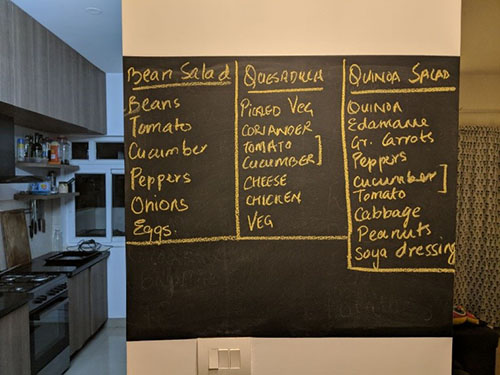 Bean Salad
Beans
Tomato
Cucumber
Peppers
Onions
Eggs.
QUESADILLA
PICKLED VEG
CORIANDER
TOMATO
CUCUMBER
CHEESE
CHICKEN
VEG
QUINOA SALAD
QUINOA
Edamame
Gr. Carrots
Peppers
Cucumber
Tomato
Cabbage
Peanuts
Soya dressing